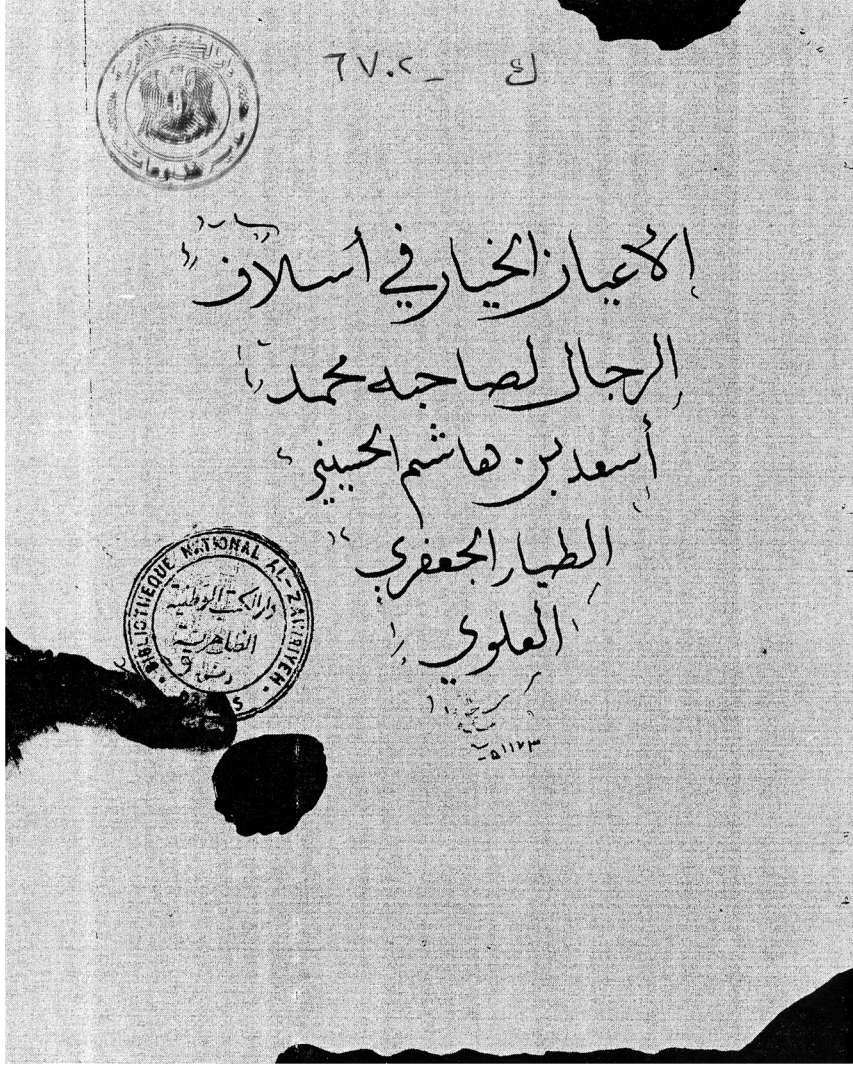 ك ـ ٦٧٠٢
الأعيان الخيار في أسلاف
الرجال لصاحبه محمد
أسعد بن هاشم الحسيني
الطيار الجعفري
العلوي
١١٢٣هـ
BIBLIOTHEQUE NATIONAL AL-ZAHIRIYEH
دار الكتب الوطنية
الظاهرية
دمشق